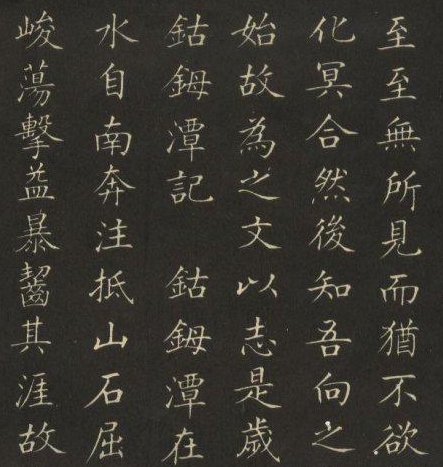 至至無所見而猶不欲
化冥合然後知吾向之
始故為之文以志是歲
鈷鉧潭記 鈷鉧潭在
水自南奔注抵山石屈
峻蕩擊益暴齧其涯故